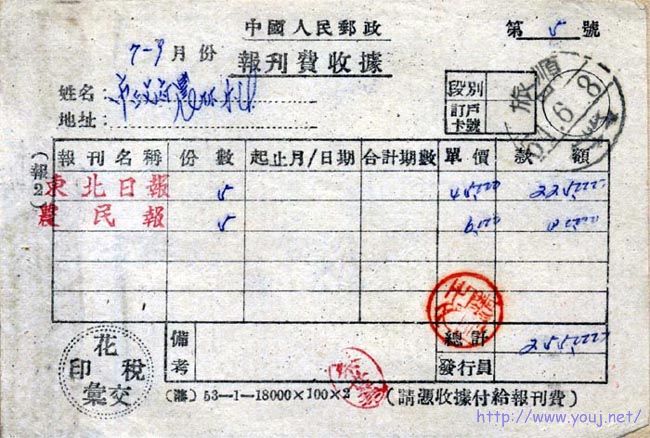 中國人民郵政
第 5 號
7-9月份
報刊費收據
姓名：
段別
地址：
訂戶卡號
旅順
6 8
（報2）
報刊名稱 份數 起止月/日期 合計期數 單價 款額
東北日報 5 45,000 225,000
農民報 5 6,000
總計 255,000
備考
發行員
印花稅彙交
53-1-18000×100×2
（請憑收據付給報刊費）
http://www.youj.net/